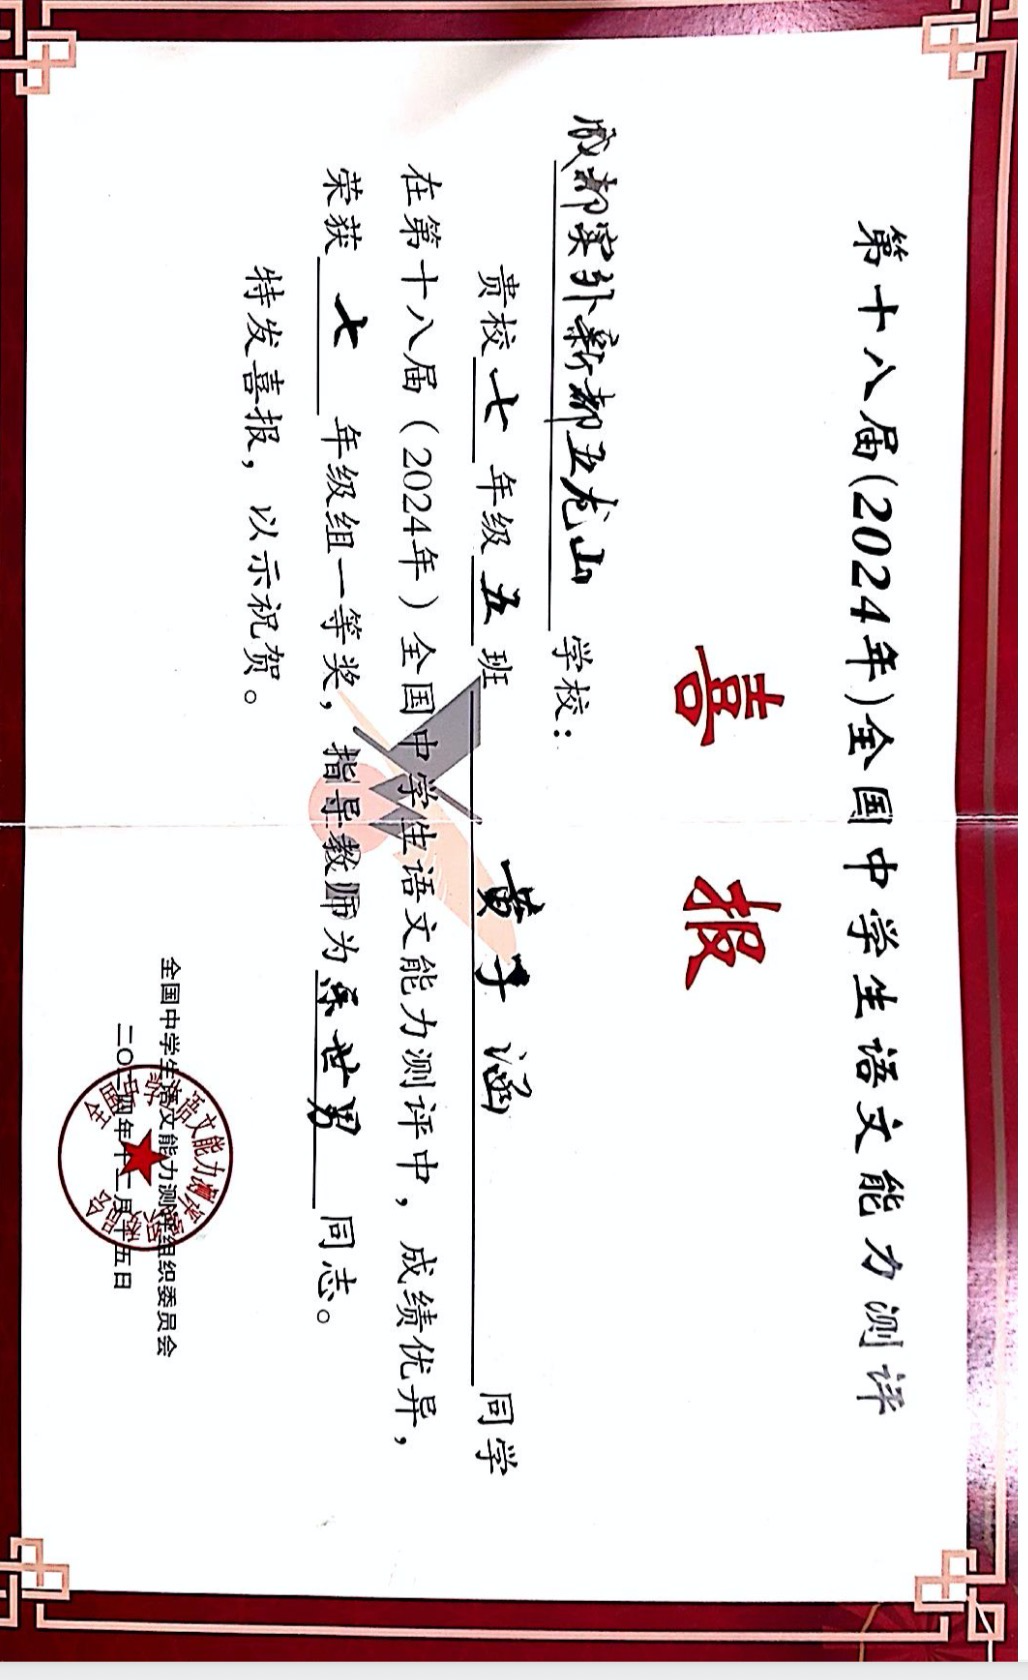 第十八届(2024年)全国中学生语文能力测评
喜报
成都实外新都五龙山 学校：
贵校 七 年级 五 班 黄子涵 同学
在第十八届（2024年）全国中学生语文能力测评中，成绩优异，
荣获 七 年级组一等奖，指导教师为 世男 同志。
特发喜报，以示祝贺。
全国中学生语文能力测评组织委员会
二〇二四年十二月十五日